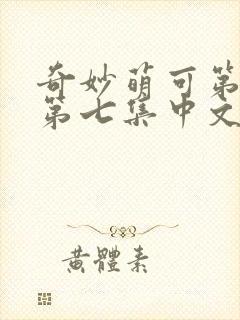 奇妙萌可第
第七集中文
黄體素